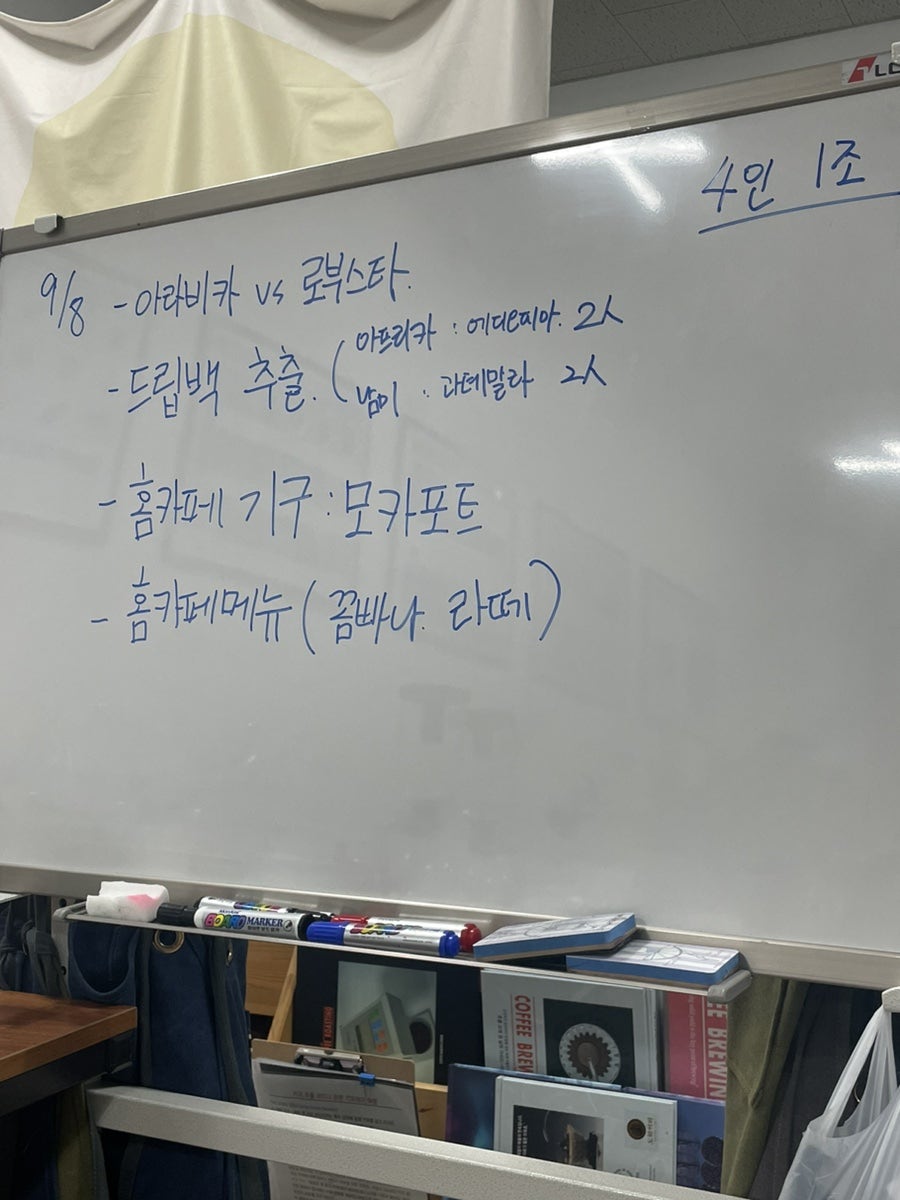 4인 1조
9/8 - 아라비카 vs 로부스타.
- 드립백 추출. ( 아프리카 : 에디오피아. 2人
남미 : 과테말라 2人
- 홈카페 기구 : 모카포트
- 홈카페메뉴 ( 꼼빠나. 라떼 )
BOARD MARKER
COFFEE BREW
EE BREWIN